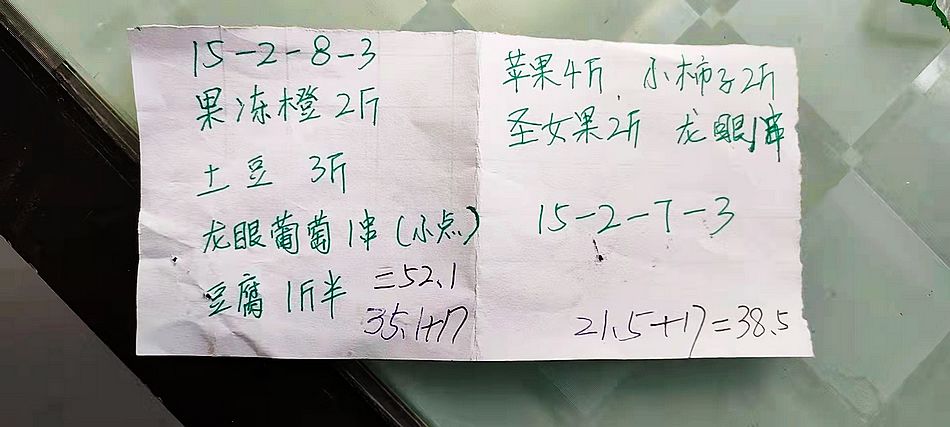 15-2-8-3
果冻橙 2斤
土豆 3斤
龙眼葡萄1串(小点)
豆腐 1斤半
=52.1
35.1+17
苹果4斤 小柿子2斤
圣女果2斤 龙眼1串
15-2-7-3
21.5+17=38.5